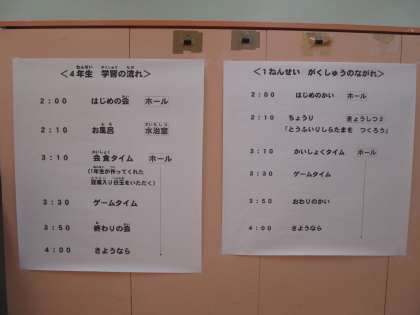 ＜4年生　学習の流れ＞
2：00　はじめの会　ホール
2：10　お風呂　水治室
3：10　会食タイム　ホール
（1年生が作ってくれた
豆腐入り白玉をいただく）
3：30　ゲームタイム
3：50　終わりの会
4：00　さようなら
＜1ねんせい　がくしゅうのながれ＞
2：00　はじめのかい　ホール
2：10　ちょうり　きょうしつ2
「とうふいりしらたまを　つくろう」
3：10　かいしょくタイム　ホール
3：30　ゲームタイム
3：50　おわりのかい
4：00　さようなら